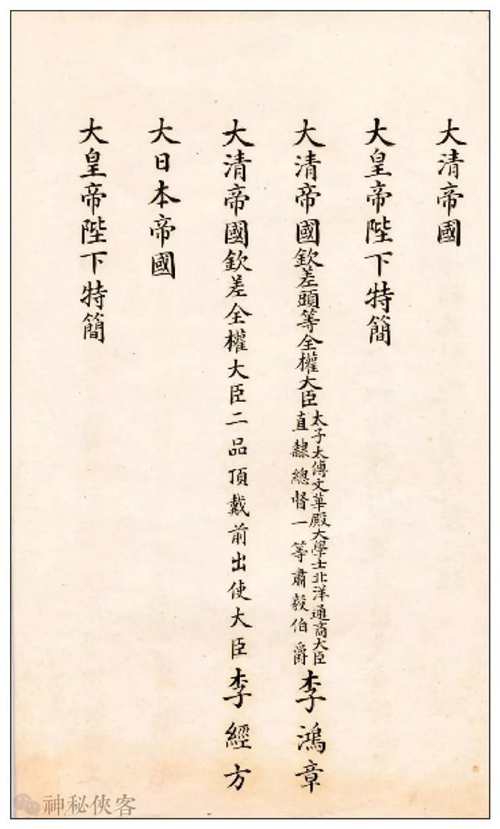 大清帝國
大皇帝陛下特簡
大清帝國欽差頭等全權大臣太子太傅文華殿大學士北洋通商大臣直隸總督一等肅毅伯爵李鴻章
大清帝國欽差全權大臣二品頂戴前出使大臣李經方
大日本帝國
大皇帝陛下特簡
神秘俠客